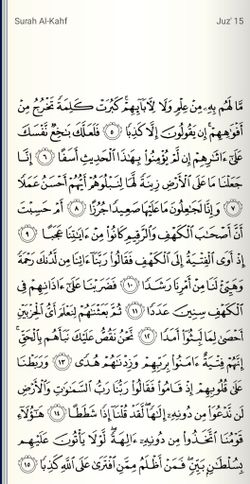 Surah Al-Kahf Juz' 15
مَّا لَهُم بِهِۦ مِنْ عِلْمٍ وَلَا لِـَٔابَآئِهِمْ ۚ كَبُرَتْ كَلِمَةً تَخْرُجُ مِنْ
أَفْوَٰهِهِمْ ۚ إِن يَقُولُونَ إِلَّا كَذِبًا ٥ فَلَعَلَّكَ بَـٰخِعٌ نَّفْسَكَ
عَلَىٰٓ ءَاثَـٰرِهِمْ إِن لَّمْ يُؤْمِنُوا۟ بِهَـٰذَا ٱلْحَدِيثِ أَسَفًا ٦ إِنَّا
جَعَلْنَا مَا عَلَى ٱلْأَرْضِ زِينَةً لَّهَا لِنَبْلُوَهُمْ أَيُّهُمْ أَحْسَنُ عَمَلًا
٧ وَإِنَّا لَجَـٰعِلُونَ مَا عَلَيْهَا صَعِيدًا جُرُزًا ٨ أَمْ حَسِبْتَ
أَنَّ أَصْحَـٰبَ ٱلْكَهْفِ وَٱلرَّقِيمِ كَانُوا۟ مِنْ ءَايَـٰتِنَا عَجَبًا ٩
إِذْ أَوَى ٱلْفِتْيَةُ إِلَى ٱلْكَهْفِ فَقَالُوا۟ رَبَّنَآ ءَاتِنَا مِن لَّدُنكَ رَحْمَةً
وَهَيِّئْ لَنَا مِنْ أَمْرِنَا رَشَدًا ١٠ فَضَرَبْنَا عَلَىٰٓ ءَاذَانِهِمْ فِى
ٱلْكَهْفِ سِنِينَ عَدَدًا ١١ ثُمَّ بَعَثْنَـٰهُمْ لِنَعْلَمَ أَىُّ ٱلْحِزْبَيْنِ
أَحْصَىٰ لِمَا لَبِثُوٓا۟ أَمَدًا ١٢ نَّحْنُ نَقُصُّ عَلَيْكَ نَبَأَهُم بِٱلْحَقِّ ۚ
إِنَّهُمْ فِتْيَةٌ ءَامَنُوا۟ بِرَبِّهِمْ وَزِدْنَـٰهُمْ هُدًى ١٣ وَرَبَطْنَا
عَلَىٰ قُلُوبِهِمْ إِذْ قَامُوا۟ فَقَالُوا۟ رَبُّنَا رَبُّ ٱلسَّمَـٰوَٰتِ وَٱلْأَرْضِ
لَن نَّدْعُوَا۟ مِن دُونِهِۦٓ إِلَـٰهًا ۖ لَّقَدْ قُلْنَآ إِذًا شَطَطًا ١٤ هَـٰٓؤُلَآءِ
قَوْمُنَا ٱتَّخَذُوا۟ مِن دُونِهِۦٓ ءَالِهَةً ۖ لَّوْلَا يَأْتُونَ عَلَيْهِم
بِسُلْطَـٰنٍۭ بَيِّنٍ ۖ فَمَنْ أَظْلَمُ مِمَّنِ ٱفْتَرَىٰ عَلَى ٱللَّهِ كَذِبًا ١٥